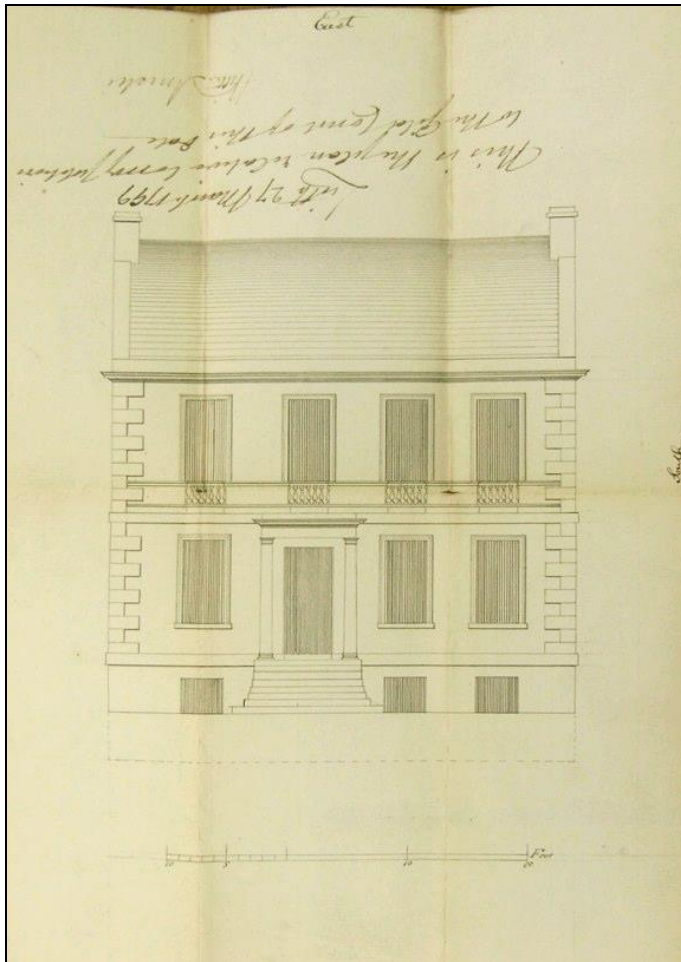 East
Leith 27 March 1799
This is the plan relative to my Petition
to the Gild Court of this date
South
10 5 10 20 Feet